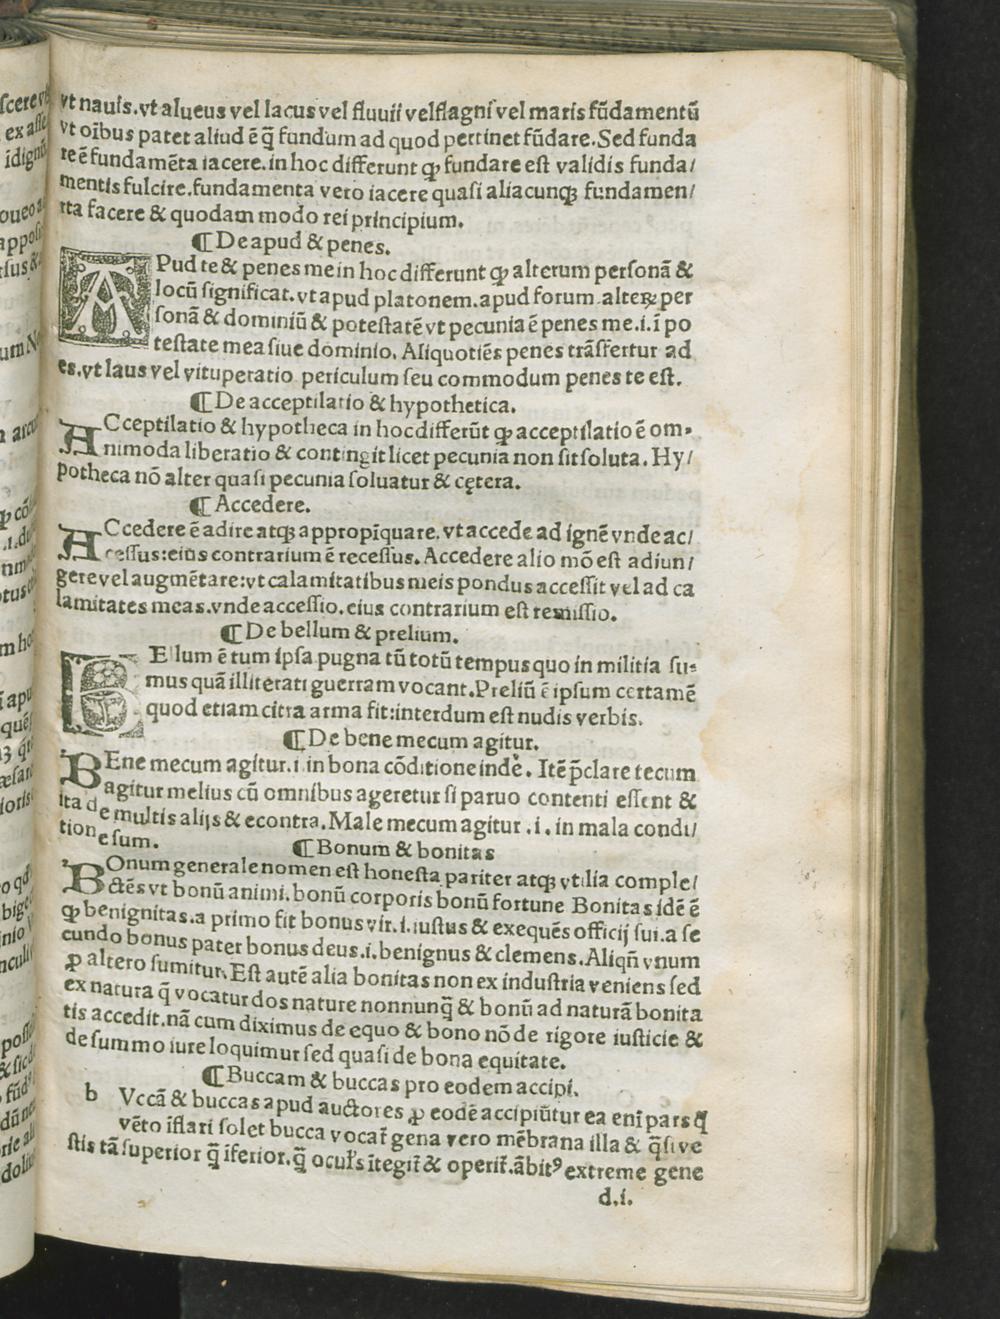 vt nauis.vt alueus vel lacus vel fluuii vel stagni vel maris fūdamentū
vt oībus patet aliud ē q̄ fundum ad quod pertinet fūdare.Sed funda
re ē fundamēta iacere.in hoc differunt ꝙ fundare est validis funda/
mentis fulcire.fundamenta vero iacere quasi aliacunqꝫ fundamen/
rta facere & quodam modo rei principium.
¶ De apud & penes.
APud te & penes me in hoc differunt ꝙ alterum personā &
locū significat.vt apud platonem.apud forum.alteꝝ per
sonā & dominiū & potestatē vt pecunia ē penes me.i.ī po
testate mea siue dominio. Aliquotiēs penes trāsfertur ad
es.vt laus vel vituperatio periculum seu commodum penes te est.
¶ De acceptilatio & hypothetica.
ACceptilatio & hypotheca in hoc differūt ꝙ acceptilatio ē om-
nimoda liberatio & contingit licet pecunia non sit soluta. Hy/
potheca nō alter quasi pecunia soluatur & cętera.
¶ Accedere.
ACcedere ē adire atqꝫ appropīquare. vt accede ad ignē vnde ac/
cessus:eius contrarium ē recessus. Accedere alio mō est adiun/
gere vel augmētare:vt calamitatibus meis pondus accessit vel ad ca
lamitates meas.vnde accessio.eius contrarium est remissio.
¶ De bellum & prelium.
BElum ē tum ipsa pugna tū totū tempus quo in militia su-
mus quā illiterati guerram vocant.Preliū ē ipsum certamē
quod etiam citra arma fit:interdum est nudis verbis.
¶ De bene mecum agitur.
BEne mecum agitur.i in bona cōditione inde. Itē p̄clare tecum
agitur melius cū omnibus ageretur si paruo contenti essent &
ita de multis alijs & econtra. Male mecum agitur .i. in mala condi/
tione sum. ¶ Bonum & bonitas
BOnum generale nomen est honesta pariter atqꝫ vtilia comple/
ctēs vt bonū animi. bonū corporis bonū fortune Bonitas idē ē
ꝙ benignitas.a primo fit bonus vir.i.iustus & exequēs officij sui.a se
cundo bonus pater bonus deus.i.benignus & clemens.Aliqñ vnum
ꝓ altero sumitur. Est autē alia bonitas non ex industria veniens sed
ex natura q̄ vocatur dos nature nonnunq̄ & bonū ad naturā bonita
tis accedit.nā cum diximus de equo & bono nō de rigore iusticie &
de summo iure loquimur sed quasi de bona equitate.
¶ Buccam & buccas pro eodem accipi.
b Vccā & buccas apud auctores ꝓ eodē accipiūtur ea eni pars q̄
vēto īflari solet bucca vocat̄ gena vero mēbrana illa & q̄si ve
stis tā superior q̄ īferior.q̄ ocuľs ītegit̄ & operit̄.ābitꝰ extreme gene
d.i.